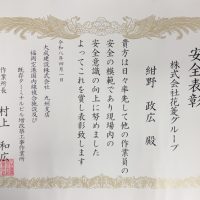 安全表彰
株式会社花菱グループ
紺野 政広 殿
貴方は日々率先して他の作業員の
安全の模範であり現場内の
安全意識の向上に努めました
よってこれを賞し表彰致します
令和八年四月一日
大成建設株式会社 九州支店
福岡空港国内線複合施設及び
既存ターミナルビル増改築工事作業所
作業所長 村上 和広